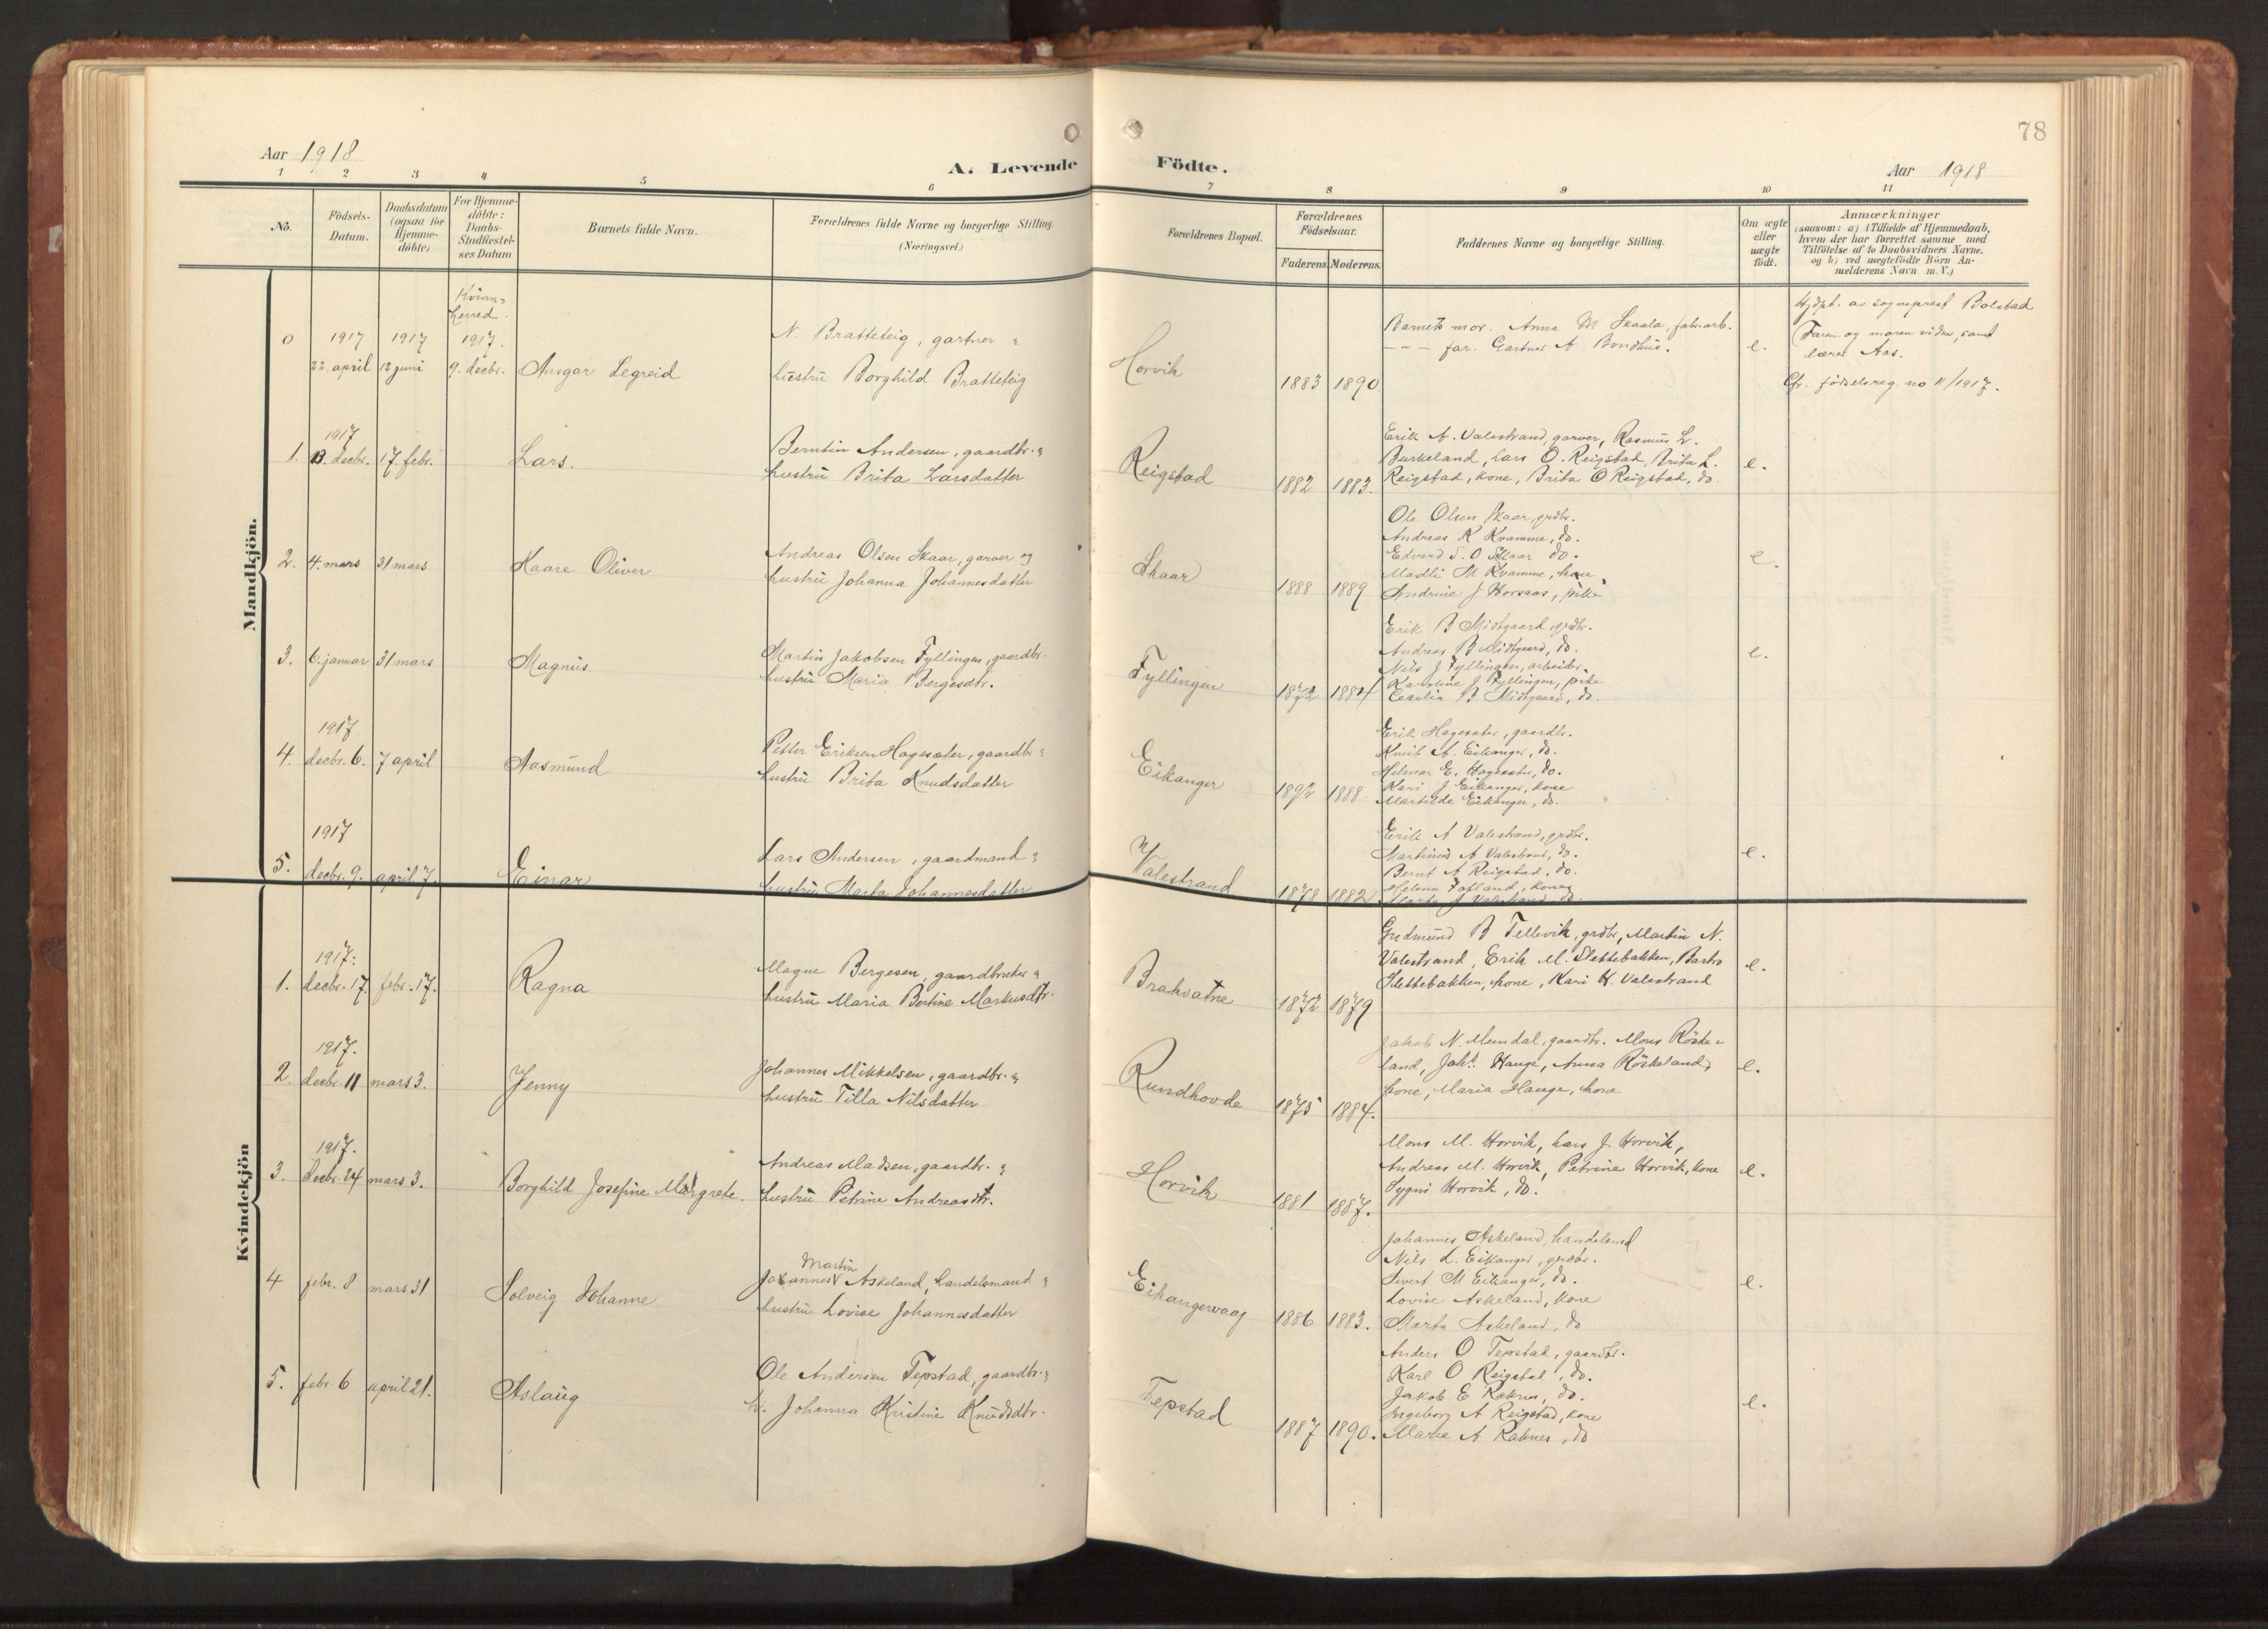 78
Aar 1918
A. Levende Födte.
Aar 1918
1 2 3 4 5 6 7 8 9 10 11
No.
Födsels-Datum.
Daabsdatum (ogsaa for Hjemme-döbte)
For Hjemme-döbte: Daabs-Stadfæstel-ses Datum
Barnets fulde Navn.
Forældrenes fulde Navne og borgerlige Stilling.
(Næringsvei.)
Forældrenes Bopæl.
Forældrenes Födselsaar.
Faderens. Moderens.
Faddernes Navne og borgerlige Stilling.
Om ægte eller uægte födt.
Anmærkninger
(saasom: a) i Tilfælde af Hjemmedaab,
hvem der har forrettet samme med
Tilföielse af to Daabsvidners Navne.
og b) ved uægtefödte Börn An-
melderens Navn m. V.)
Mandkjön.
0 1917 22. april 1917 12 juni Kvinn-herred. 1917. 9. decbr. Ansgar Legreid
N. Bratteteig, gartner
hustru Borghild Bratteteig
Horvik 1883 1890
Barnets mor. Anna M Skaala, fabr.arb.
--- far. Gartner A Bondhus.
e.
Hjdpt. av sogneprest Bolstad
Faren og moren vidner, samt
lærer Aas.
Cfr. födselsreg. no 11/1917.
1. 1917 13. decbr. 17. febr. Lars.
Berntin Andersen, gaardbr. "
hustru Brita Larsdatter
Reigstad 1882 1883.
Erik A. Valestrand, garver, Rasmus L.
Burkeland, Lars O. Reigstad, Brita L.
Reigstad, kone, Brita O Reigstad, do.
e.
2. 4. mars 31 mars Kaare Oliver
Andreas Olsen Skaar, garver og
hustru Johanna Johannesdatter
Skaar 1888 1889
Ole Olsen Skaar, grdbr.
Andreas K Kvamme, do.
Edvard S. O Skaar do.
Madli M Kvamme, kone
Andrine J Horsaas, pike
e.
3. 6. januar 31 mars Magnus
Martin Jakobsen Fyllingen, gaardbr.
hustru Maria Bergesdtr.
Fyllingen 1872 1884
Erik B Midtgaard, grdbr.
Andreas B Midtgaard, do.
Nils J Fyllingen, arbeider.
Karoline J Fyllingen, pike
Cecilia B Midtgaard, do.
e.
4. 1917. decbr. 6. 7 april Aasmund
Petter Eriksen Hagesæter, gaardbr "
hustru Brita Knudsdatter
Eikanger 1892 1888
Erik Hagesæter, gaardbr.
Knut A. Eikanger, do.
Hilmar E. Hagesæter, do.
Kari J Eikanger, kone
Martilde Eikanger, do.
5. 1917 decbr. 9. april 7. Einar
Lars Andersen, gaardmand "
hustru Marta Johannesdatter
Valestrand 1878 1882
Erik A Valestrand, grdbr.
Martinus A Valestrand, do.
Bernt A Reigstad, do.
Helena Fatland, kone
Marta J Valestrand do.
e.
Kvindekjön
1. 1917. decbr. 17. febr. 17. Ragna
Magne Bergesen, gaardbruker "
hustru Maria Bertine Markusdtr.
Brakvatne 1872 1879
Gudmund B Tellevik, grdbr, Martin N.
Valestrand, Erik M. Slettebakken, Barbro
Slettebakken, kone, Kari K. Valestrand
e.
2. 1917. decbr. 11 mars 3. Jenny
Johannes Mikkelsen, gaardbr. "
hustru Tilla Nilsdatter
Rundhovde 1875 1884.
Jakob N. Mundal, gaardbr. Mons Röske-
land, Johs. Hauge, Anna Röskeland,
kone, Maria Hauge, kone
e.
3. 1917. decbr. 24 mars 3. Borghild Josefine Margrete.
Andreas Madsen, gaardbr. "
hustru Petrine Andreasdtr.
Horvik 1881 1887.
Mons M. Horvik, Lars J. Horvik,
Andreas M. Horvik, Petrine Horvik, kone
Sygni Horvik, do.
e.
4 febr. 8 mars 31 Solveig Johanne
Martin
Johannes Askeland, handelsmand "
hustru Lovise Johannesdatter
Eikangervaag 1886 1883.
Johannes Askeland, handelsmd
Nils L. Eikanger, grdbr.
Sivert M Eikanger, do.
Lovise Askeland, kone
Marta Askeland, do
e.
5. febr. 6 april 21. Aslaug
Ole Andersen Tepstad, gaardbr. "
h. Johanna Kristine Knudsdtr.
Tepstad 1887 1890.
Anders O Tepstad, gaardbr.
Karl O Reigstad, do.
Jakob E Raknes, do.
Ingeborg A Reigstad, kone
Marie A Raknes, do
e.